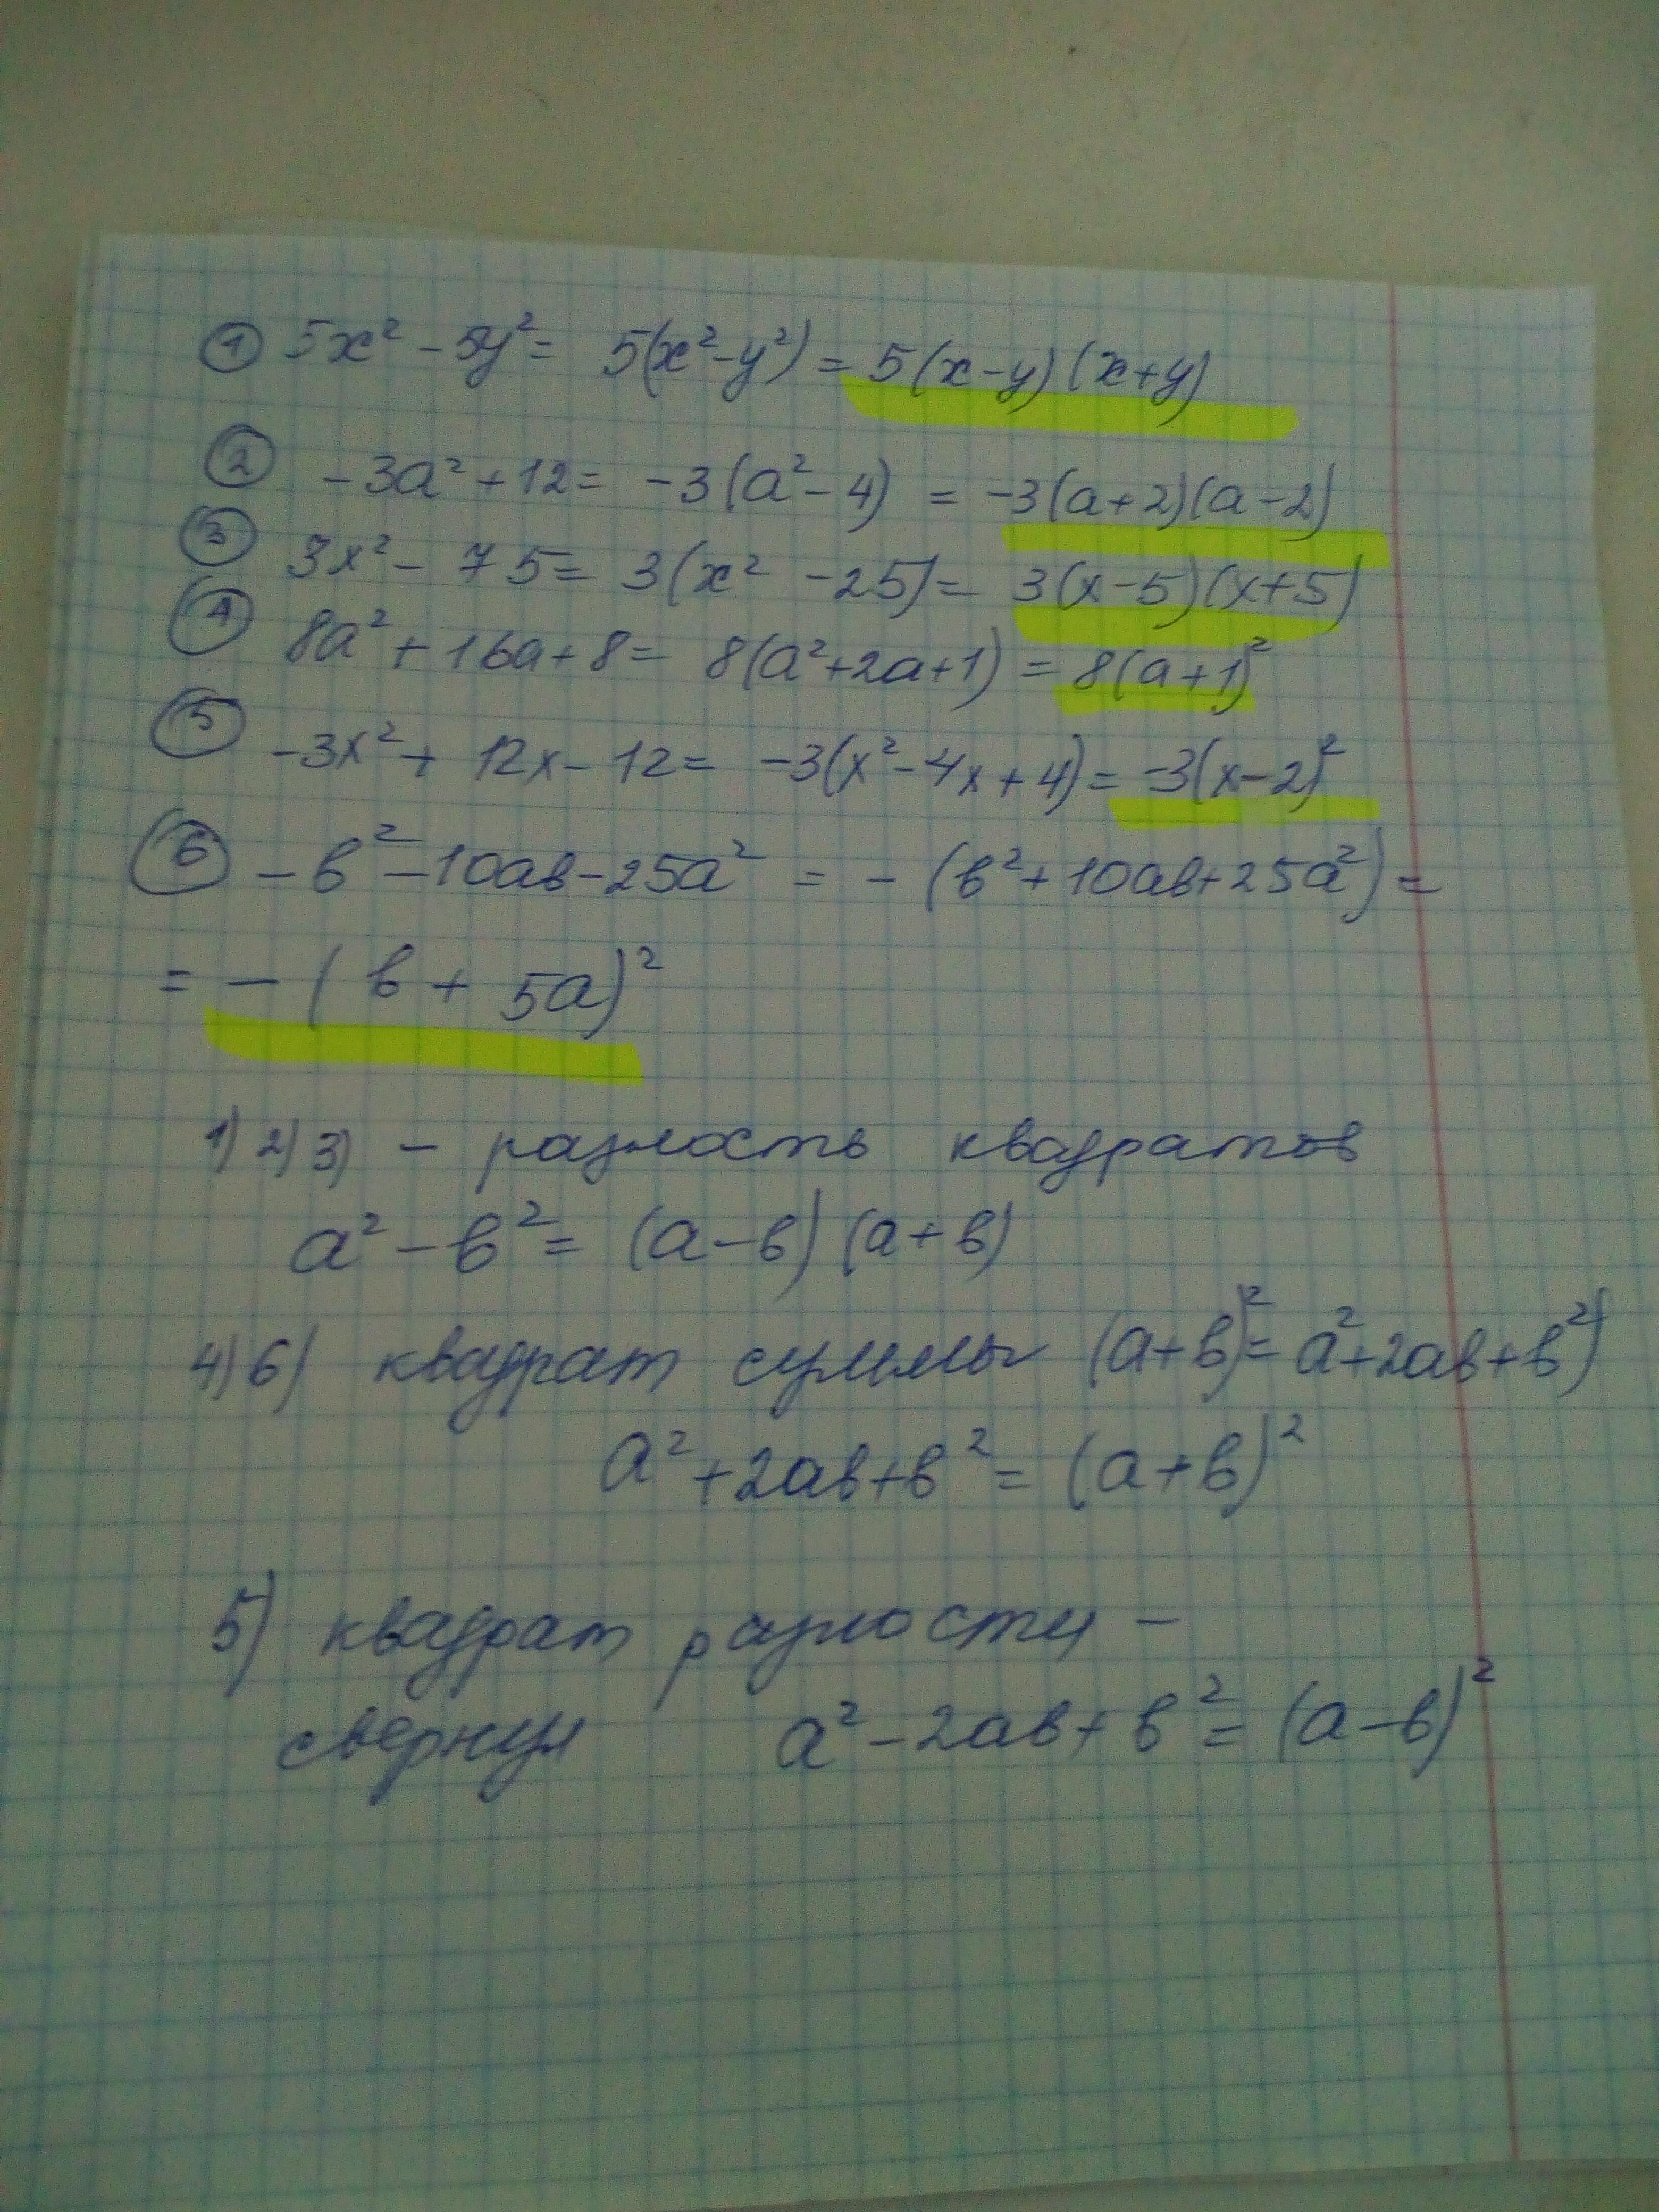 ① 5x² - 5y² = 5(x² - y²) = 5(x-y)(x+y)
② -3a² + 12 = -3(a² - 4) = -3(a+2)(a-2)
③ 3x² - 75 = 3(x² - 25) = 3(x-5)(x+5)
④ 8a² + 16a + 8 = 8(a² + 2a + 1) = 8(a+1)²
⑤ -3x² + 12x - 12 = -3(x² - 4x + 4) = -3(x-2)²
⑥ -в² - 10ав - 25а² = - (в² + 10ав + 25а²) =
= - (в + 5а)²
1) 2) 3) - разность квадратов
а² - в² = (а-в)(а+в)
4) 6) квадрат суммы (а+в)² = а² + 2ав + в²)
а² + 2ав + в² = (а+в)²
5) квадрат разности -
свернул а² - 2ав + в² = (а-в)²